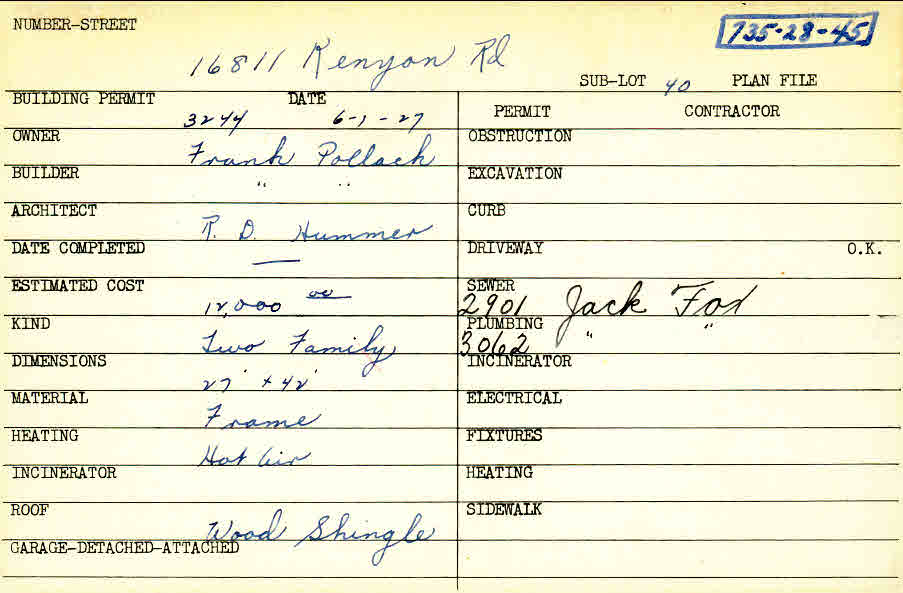 NUMBER-STREET
735-28-45
16811 Kenyon Rd
SUB-LOT 40 PLAN FILE
BUILDING PERMIT 3244 DATE 6-1-27
PERMIT CONTRACTOR
OWNER Frank Pollack
OBSTRUCTION
BUILDER " "
EXCAVATION
ARCHITECT R. D. Hummer
CURB
DATE COMPLETED —
DRIVEWAY O.K.
ESTIMATED COST 12,000 00
SEWER 2901 Jack Fox
KIND Two Family
PLUMBING 3062 " "
DIMENSIONS 27' x 42'
INCINERATOR
MATERIAL Frame
ELECTRICAL
HEATING Hot Air
FIXTURES
INCINERATOR
HEATING
ROOF Wood Shingle
SIDEWALK
GARAGE-DETACHED-ATTACHED